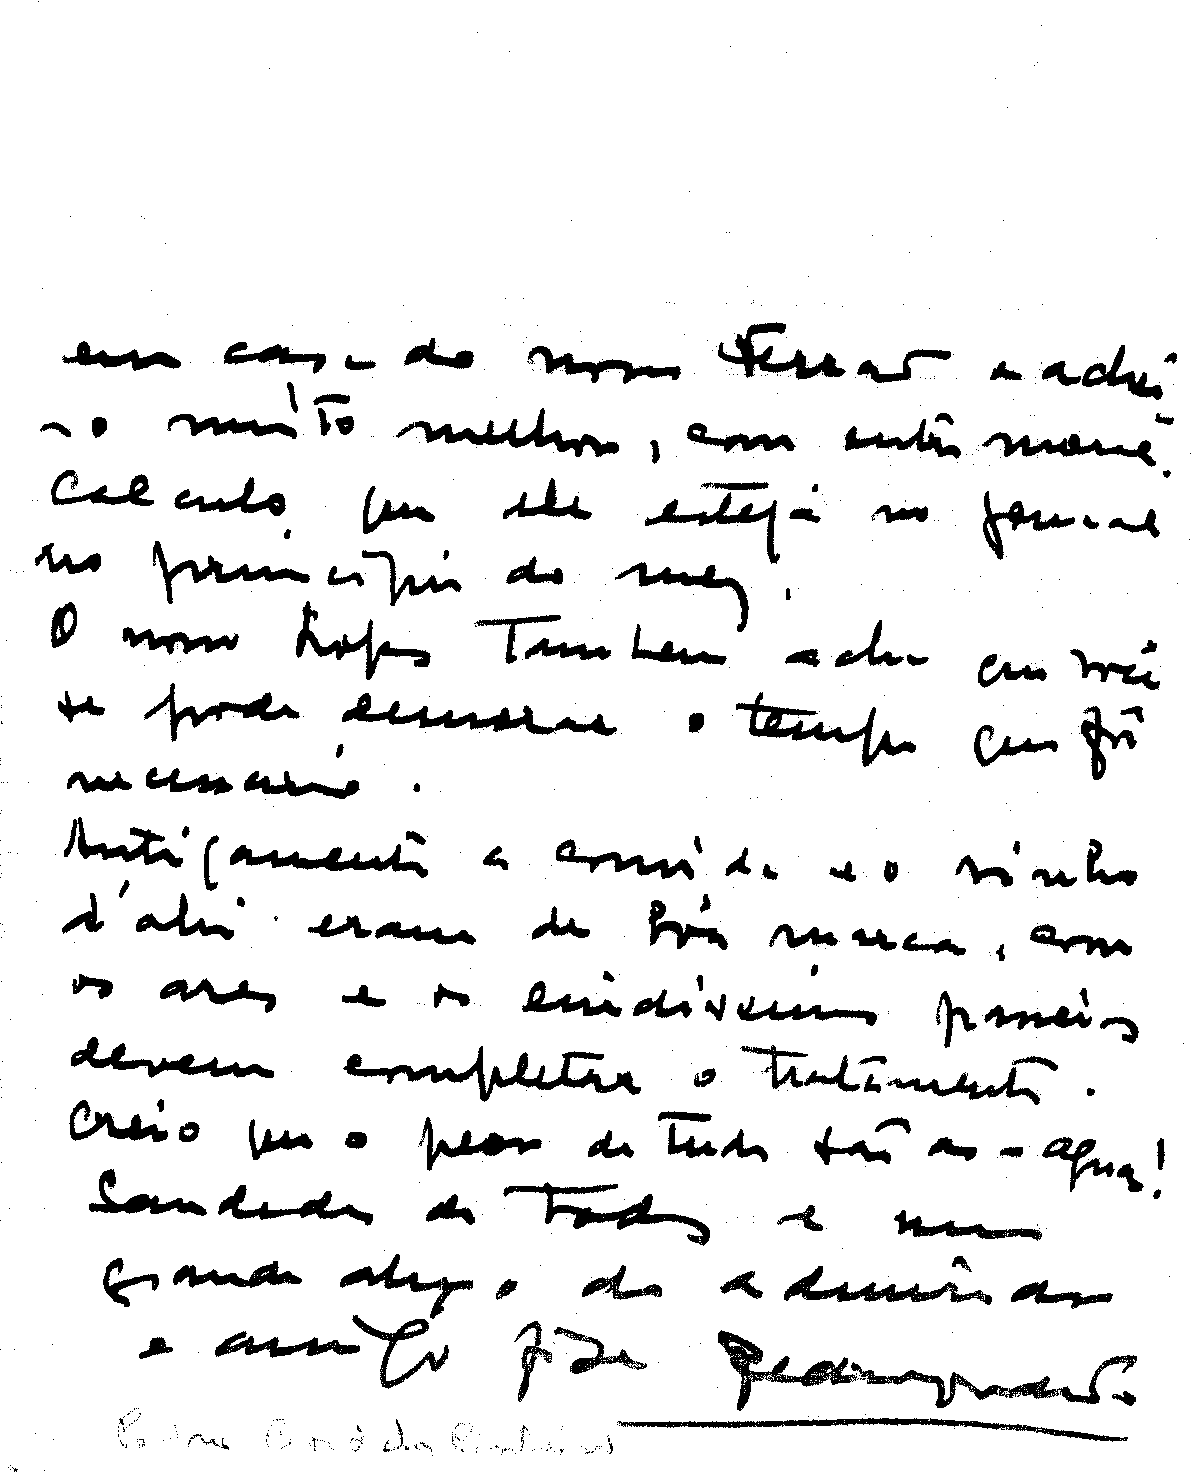 em casa do nosso Ferrão e achei
-o muito melhor, com outra moral.
Calculo que ele esteja no jornal
no principio do mez.
O nosso Lopes tambem acha que você
se pode demorar o tempo que fôr
necessario.
Antigamente a comida e o vinho
d'ahi eram de bôa marca, com
os ares e os lindissimos passeios
devem completar o tratamento.
Creio que o peor de tudo são as-aguas!
Saudades de todos e um
grande abraço do admirador
e amigo